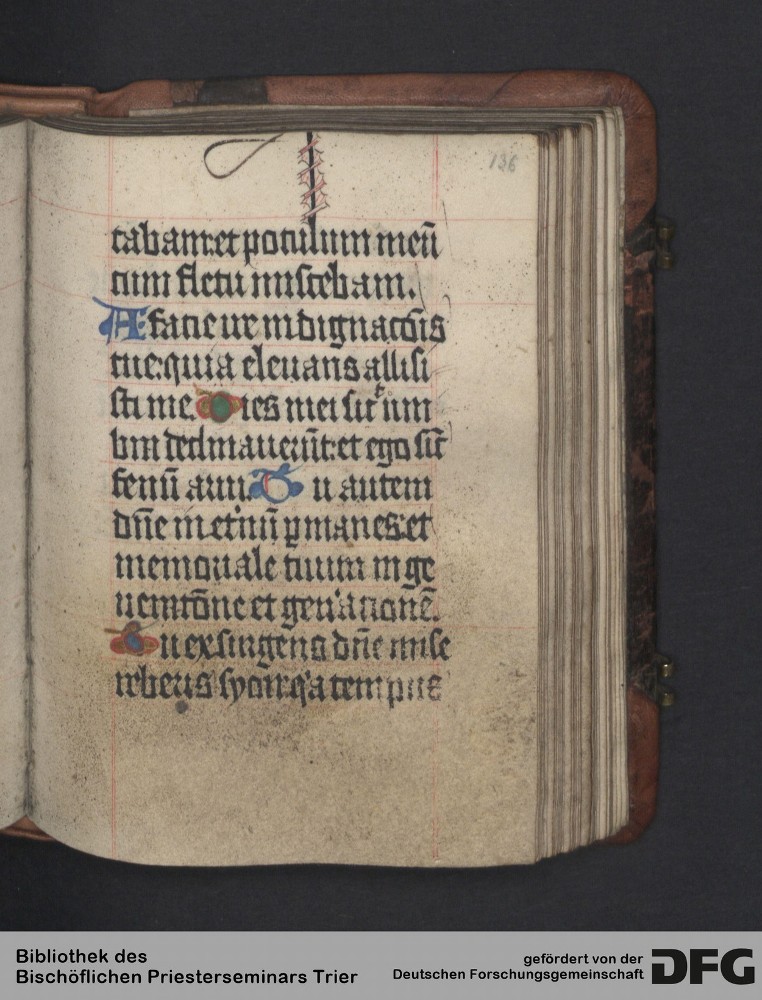 136
tabam: et potulum meū
cum fletu miscebam.
A facie ire indignacōis
tue: quia elevans allisi
sti me. Dies mei sicͭ um
bra declinauerūt: et ego sic̄
fenū arui. Tu autem
dn̄e in eternū ꝑmanes: et
memoriale tuum in ge
neracōne et gen'acionē.
Tu exsurgens dn̄e mise
reberis syon: q'a tempus
Bibliothek des
Bischöflichen Priesterseminars Trier
gefördert von der
Deutschen Forschungsgemeinschaft
DFG